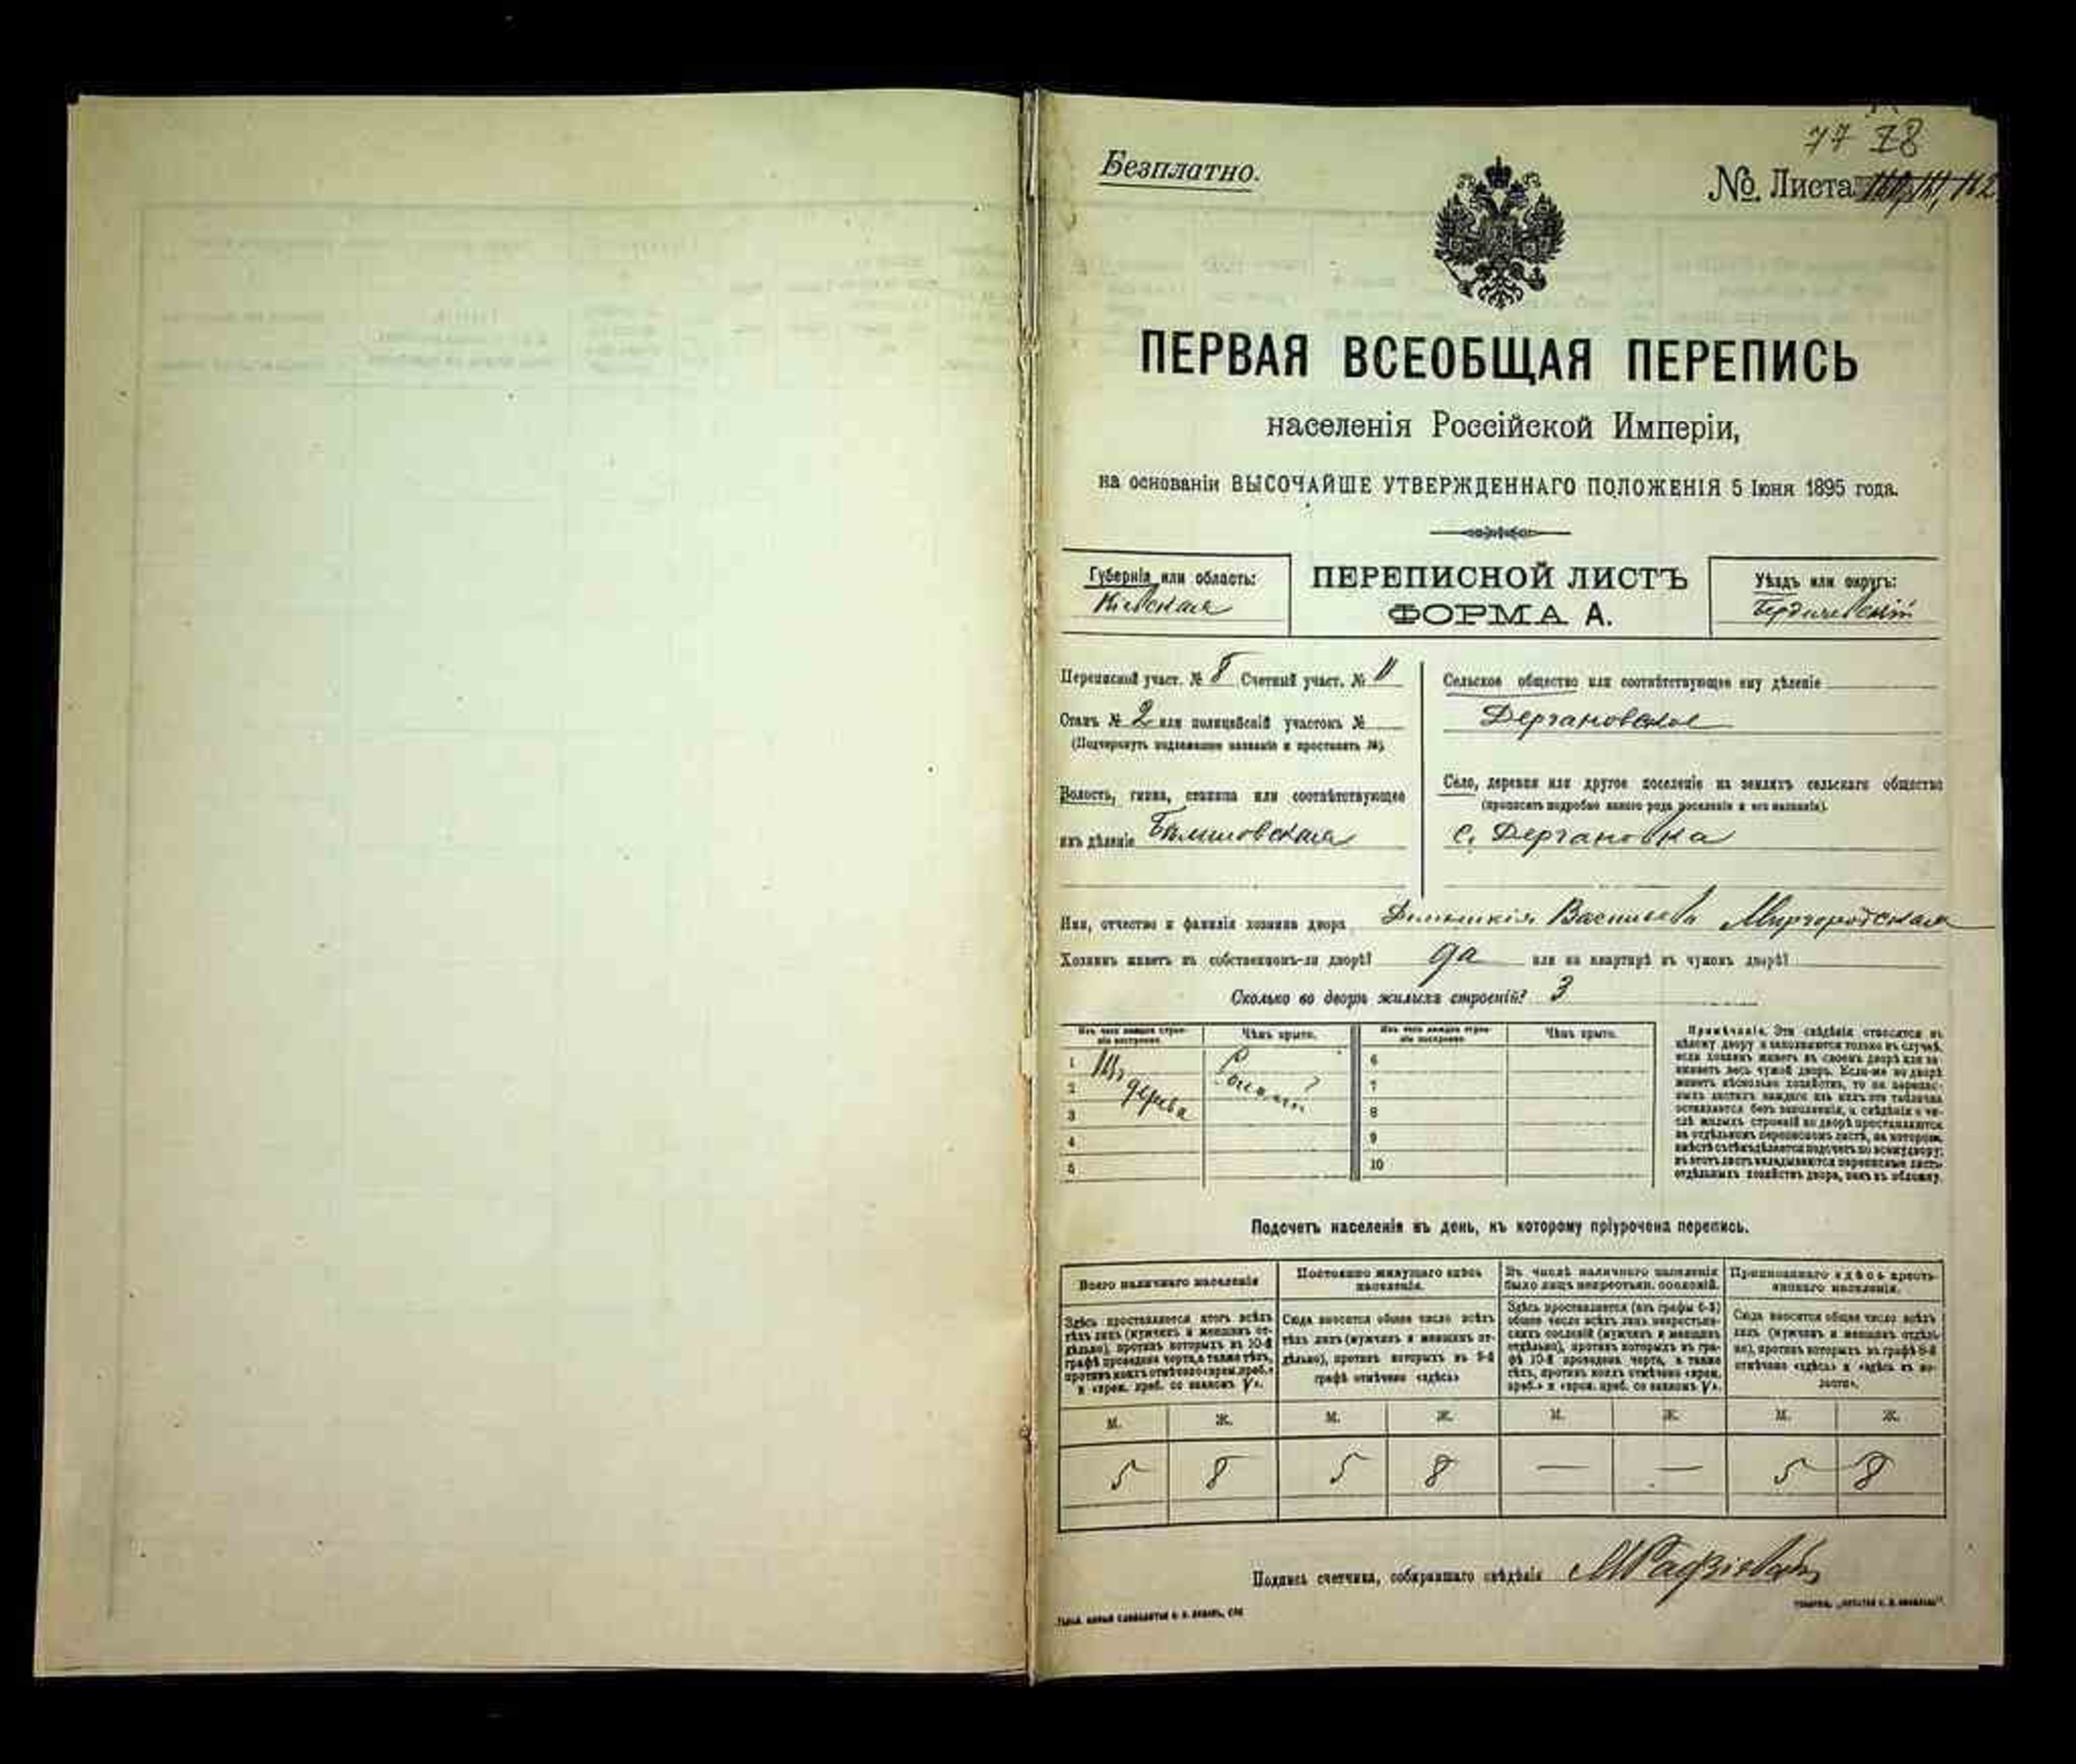 77 78
Безплатно.
№. Листа 162
ПЕРВАЯ ВСЕОБЩАЯ ПЕРЕПИСЬ
населенія Россійской Имперіи,
на основаніи ВЫСОЧАЙШЕ УТВЕРЖДЕННАГО ПОЛОЖЕНІЯ 5 Іюня 1895 года.
Губернія или область:
Кіевская
ПЕРЕПИСНОЙ ЛИСТЪ
ФОРМА А.
Уѣздъ или округъ:
Бердичевскій
Переписной участ. № 8 Счетный участ. № 11
Станъ № 2 или полицейскій участокъ №
(Подчеркнуть надлежащее названіе и проставить №).
Волость, гмина, станица или соотвѣтствующее
имъ дѣленіе
Сельское общество или соотвѣтствующее ему дѣленіе
Дергановское
Село, деревня или другое поселеніе на земляхъ сельскаго общества
(прописать подробно какого рода поселеніе и его названіе).
с. Дергановка
Имя, отчество и фамилія хозяина двора Васильева Миргородская
Хозяинъ живетъ въ собственномъ-ли дворѣ? да или на квартирѣ въ чужомъ дворѣ?
Сколько во дворѣ жилыхъ строеній? 3
Изъ чего каждое строе-
ніе построено.
Чѣмъ крыто.
Изъ чего каждое строе-
ніе построено.
Чѣмъ крыто.
1 Изъ
2 дерева
3
4
5
Соломой
6
7
8
9
10
Примѣчаніе. Эти свѣдѣнія относятся къ
цѣлому двору и заполняются только въ случаѣ,
если хозяинъ живетъ въ своемъ дворѣ или за-
нимаетъ весь чужой дворъ. Если-же во дворѣ
живетъ нѣсколько хозяйствъ, то на перепис-
ныхъ листахъ каждаго изъ нихъ эта табличка
оставляется безъ заполненія, а свѣдѣнія о чи-
слѣ жилыхъ строеній во дворѣ проставляются
на отдѣльномъ переписномъ листѣ, на которомъ
вмѣстѣ съ тѣмъ дѣлается подсчетъ по всему двору;
въ этотъ листъ вкладываются переписные листы
отдѣльныхъ хозяйствъ двора, какъ въ обложку.
Подсчетъ населенія въ день, къ которому пріурочена перепись.
Всего наличнаго населенія
Постоянно живущаго здѣсь
населенія.
Въ числѣ наличнаго населенія
было лицъ некрестьян. сословій.
Приписаннаго здѣсь кресть-
янскаго населенія.
Здѣсь проставляется итогъ всѣхъ
тѣхъ лицъ (мужчинъ и женщинъ от-
дѣльно), противъ которыхъ въ 10-й
графѣ проведена черта, а также тѣхъ,
противъ коихъ отмѣчено «врем. преб.»
и «врем. преб. со знакомъ V».
Сюда вносится общее число всѣхъ
тѣхъ лицъ (мужчинъ и женщинъ от-
дѣльно), противъ которыхъ въ 9-й
графѣ отмѣчено «здѣсь»
Здѣсь проставляется (изъ графы 6-й)
общее число всѣхъ лицъ некрестьян-
скихъ сословій (мужчинъ и женщинъ
отдѣльно), противъ которыхъ въ гра-
фѣ 10-й проведена черта, а также
тѣхъ, противъ коихъ отмѣчено «врем.
преб.» и «врем. преб. со знакомъ V».
Сюда вносится общее число всѣхъ
лицъ (мужчинъ и женщинъ отдѣль-
но), противъ которыхъ въ графѣ 8-й
отмѣчено «здѣсь» и «здѣсь въ во-
лости».
М. Ж. М. Ж. М. Ж. М. Ж.
5 8 5 8 — — 5 8
Подпись счетчика, собиравшаго свѣдѣнія